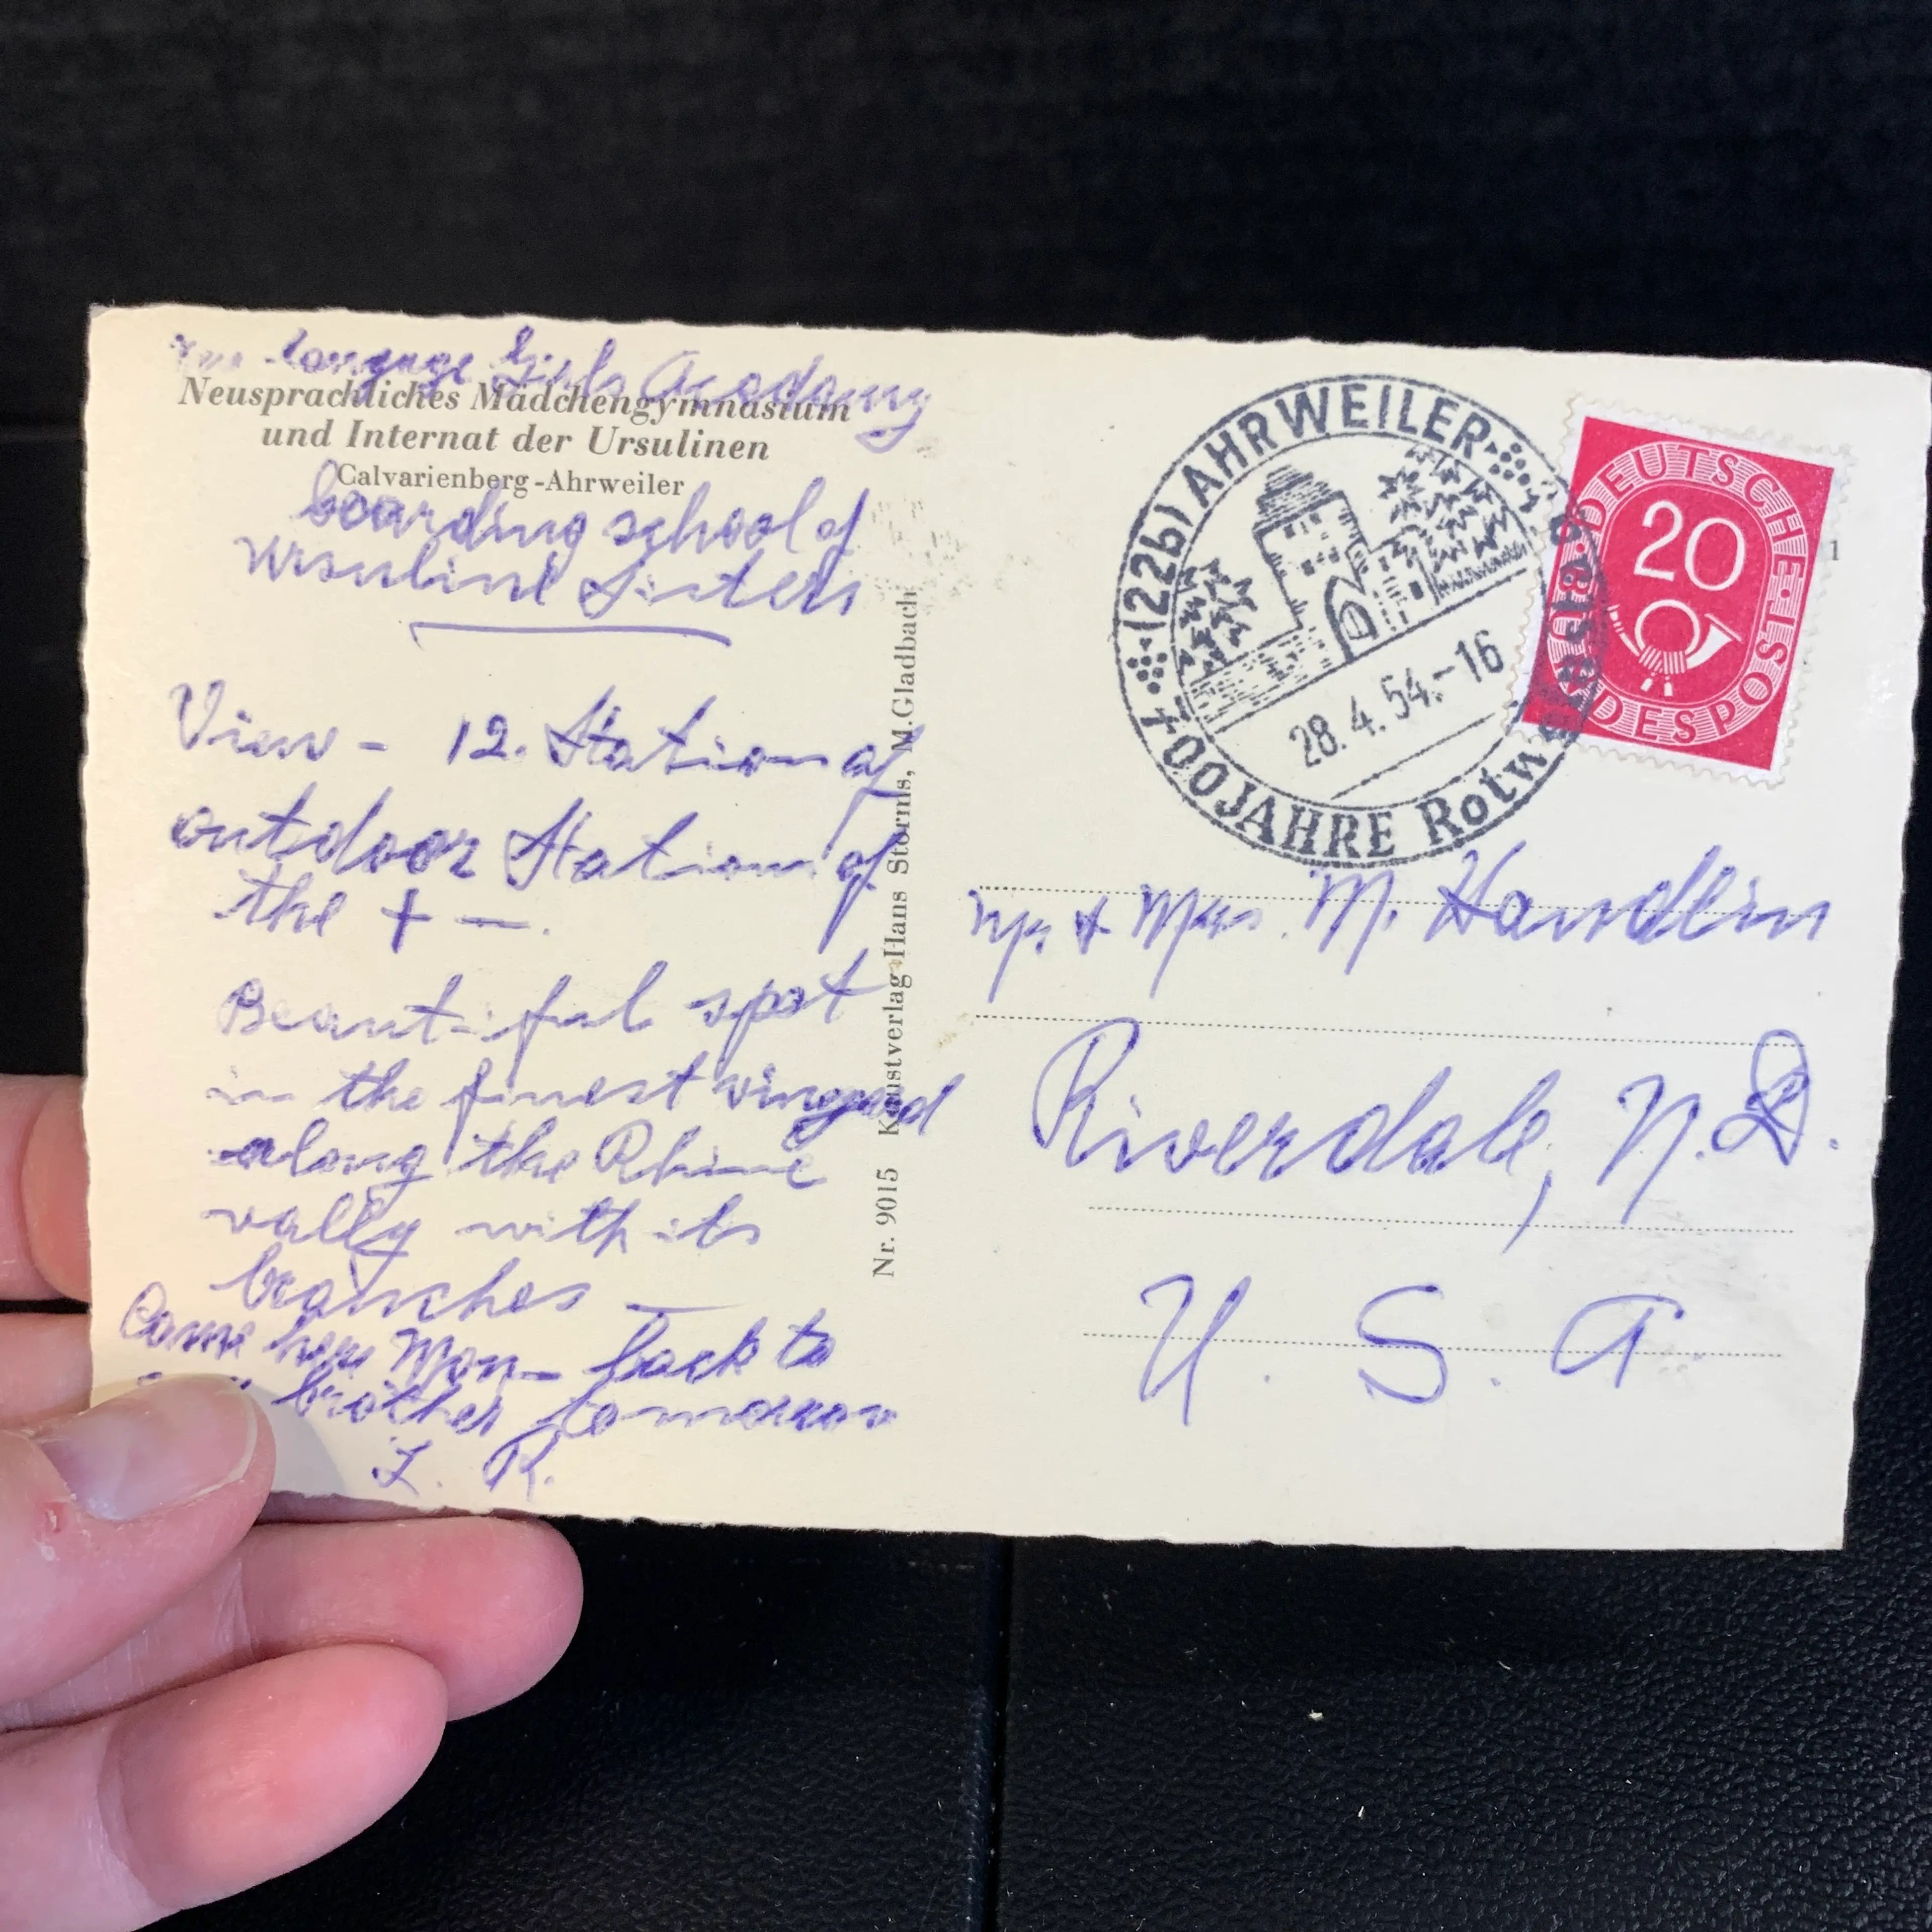 language Girls Acadamy
Neusprachliches Mädchengymnasium
und Internat der Ursulinen
Calvarienberg-Ahrweiler
boarding school of
Ursuline Sisters
View - 12. Station of
outdoor Station of
the + —.
Beautiful spot
in the finest vineyard
along the Rhine
vally with its
branches —
Came here Mon— back to
brother tomorrow
L. R.
Nr. 9015 Kunstverlag Hans Storms, M.Gladbach
(22b) AHRWEILER
28.4.54.-16
700 JAHRE Rotw
DEUTSCHE BUNDESPOST
20
1
Mr. & Mrs. M. Handlin
Riverdale, N.D.
U. S. A